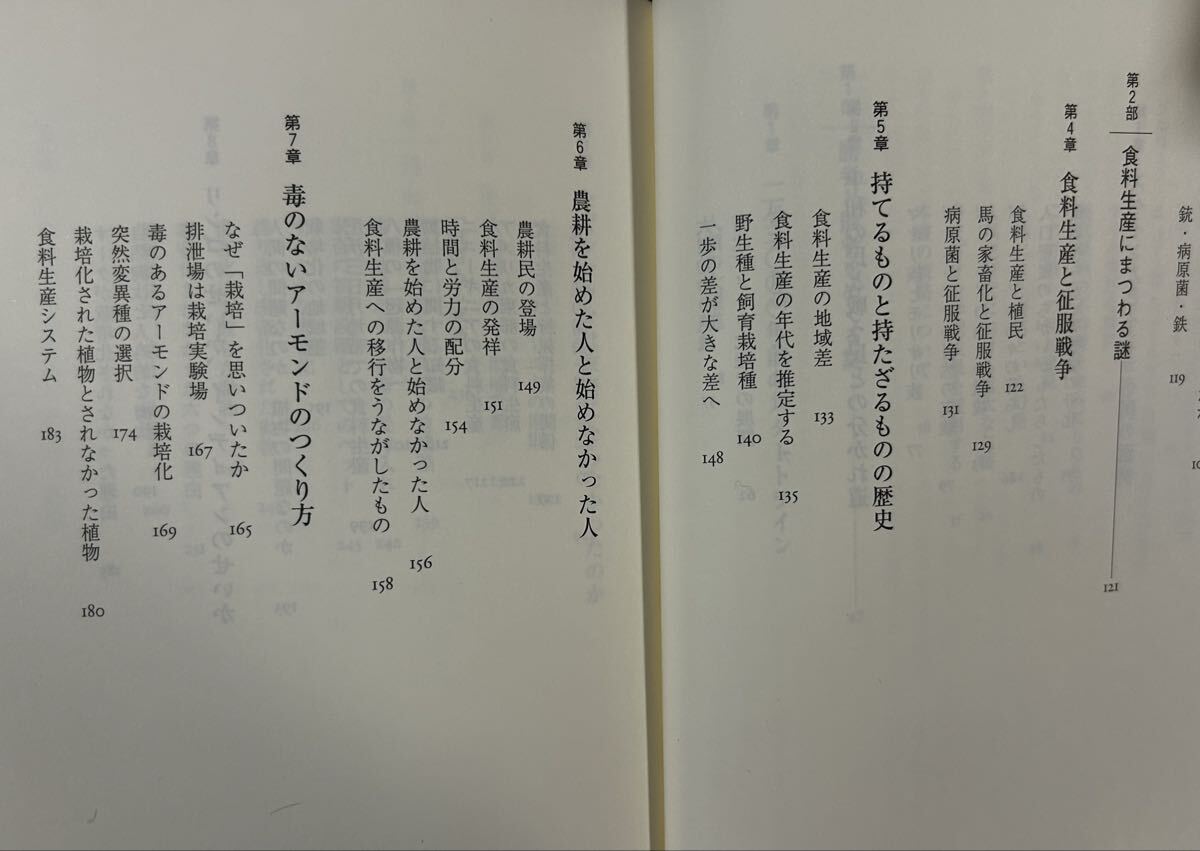 銃・病原菌・鉄 119
第2部 食料生産にまつわる謎 121
第4章 食料生産と征服戦争
食料生産と植民 122
馬の家畜化と征服戦争 129
病原菌と征服戦争 131
第5章 持てるものと持たざるものの歴史
食料生産の地域差 133
食料生産の年代を推定する 135
野生種と飼育栽培種 140
一歩の差が大きな差へ 148
第6章 農耕を始めた人と始めなかった人
農耕民の登場 149
食料生産の発祥 151
時間と労力の配分 154
農耕を始めた人と始めなかった人 156
食料生産への移行をうながしたもの 158
第7章 毒のないアーモンドのつくり方
なぜ「栽培」を思いついたか 165
排泄場は栽培実験場 167
毒のあるアーモンドの栽培化 169
突然変異種の選択 174
栽培化された植物とされなかった植物 180
食料生産システム 183